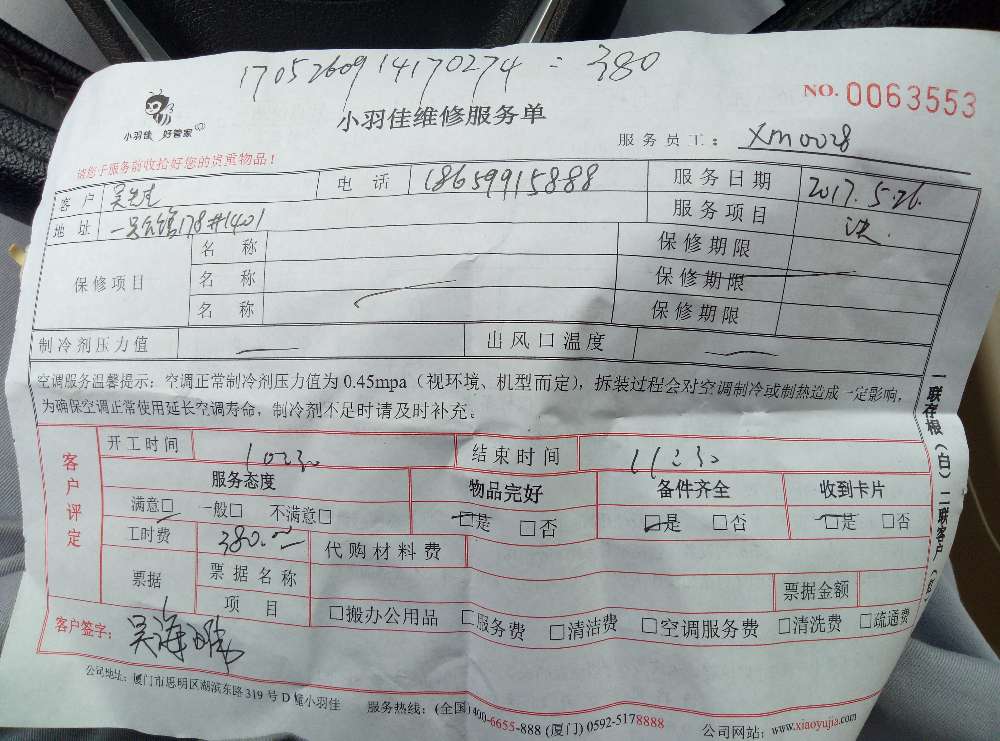 17052609 14170274 = 380
NO. 0063553
小羽佳 好管家
小羽佳维修服务单
服务员工: XM0028
请您于服务前收拾好您的贵重物品!
客户 吴先生 电话 18659915888 服务日期 2017.5.26.
地址 一号公馆178#1401 服务项目
保修项目 名称 保修期限
名称 保修期限
名称 保修期限
制冷剂压力值 出风口温度
空调服务温馨提示: 空调正常制冷剂压力值为 0.45mpa (视环境、机型而定), 拆装过程会对空调制冷或制热造成一定影响,
为确保空调正常使用延长空调寿命, 制冷剂不足时请及时补充。
一联存根(白) 二联客户(
客户评定
开工时间 10:30 结束时间 11:30
服务态度 物品完好 备件齐全 收到卡片
满意□ 一般□ 不满意□ □是 □否 □是 □否 □是 □否
工时费 380.00 代购材料费
票据 票据名称 票据金额
项目 □搬办公用品 □服务费 □清洁费 □空调服务费 □清洗费 □疏通费
客户签字:
公司地址: 厦门市思明区湖滨东路 319 号 D 幢小羽佳 服务热线: (全国)400-6655-888 (厦门) 0592-5178888 公司网站: www.xiaoyujia.com